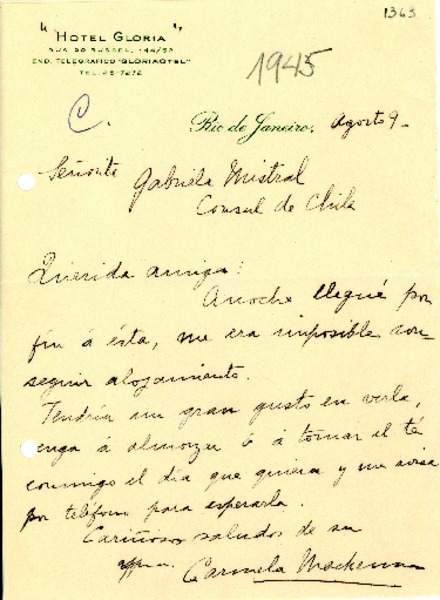 1363
"HOTEL GLORIA"
RUA DO RUSSEL, 144/52
END. TELEGRAFICO "GLORIAOTEL"
TEL. 25-7272
1945
C.
Rio de Janeiro, Agosto 9-
Señorita
Gabriela Mistral
Consul de Chile
Querida amiga:
Anoche llegué por
fin á ésta, me era imposible con-
seguir alojamiento.
Tendría un gran gusto en verla,
enga á almorzar ó á tomar el té
conmigo el día que quiera y me avisa
por teléfono para esperarla.
Cariñosos saludos de su
Carmela Mackenna